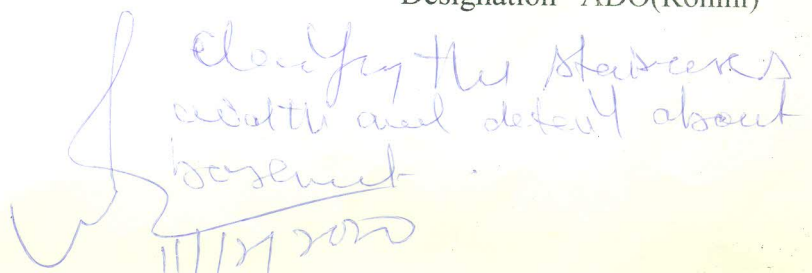 Designation ADO(Rohini)
Clarifying the staircases
width and detail about
basement.
11/12/2020